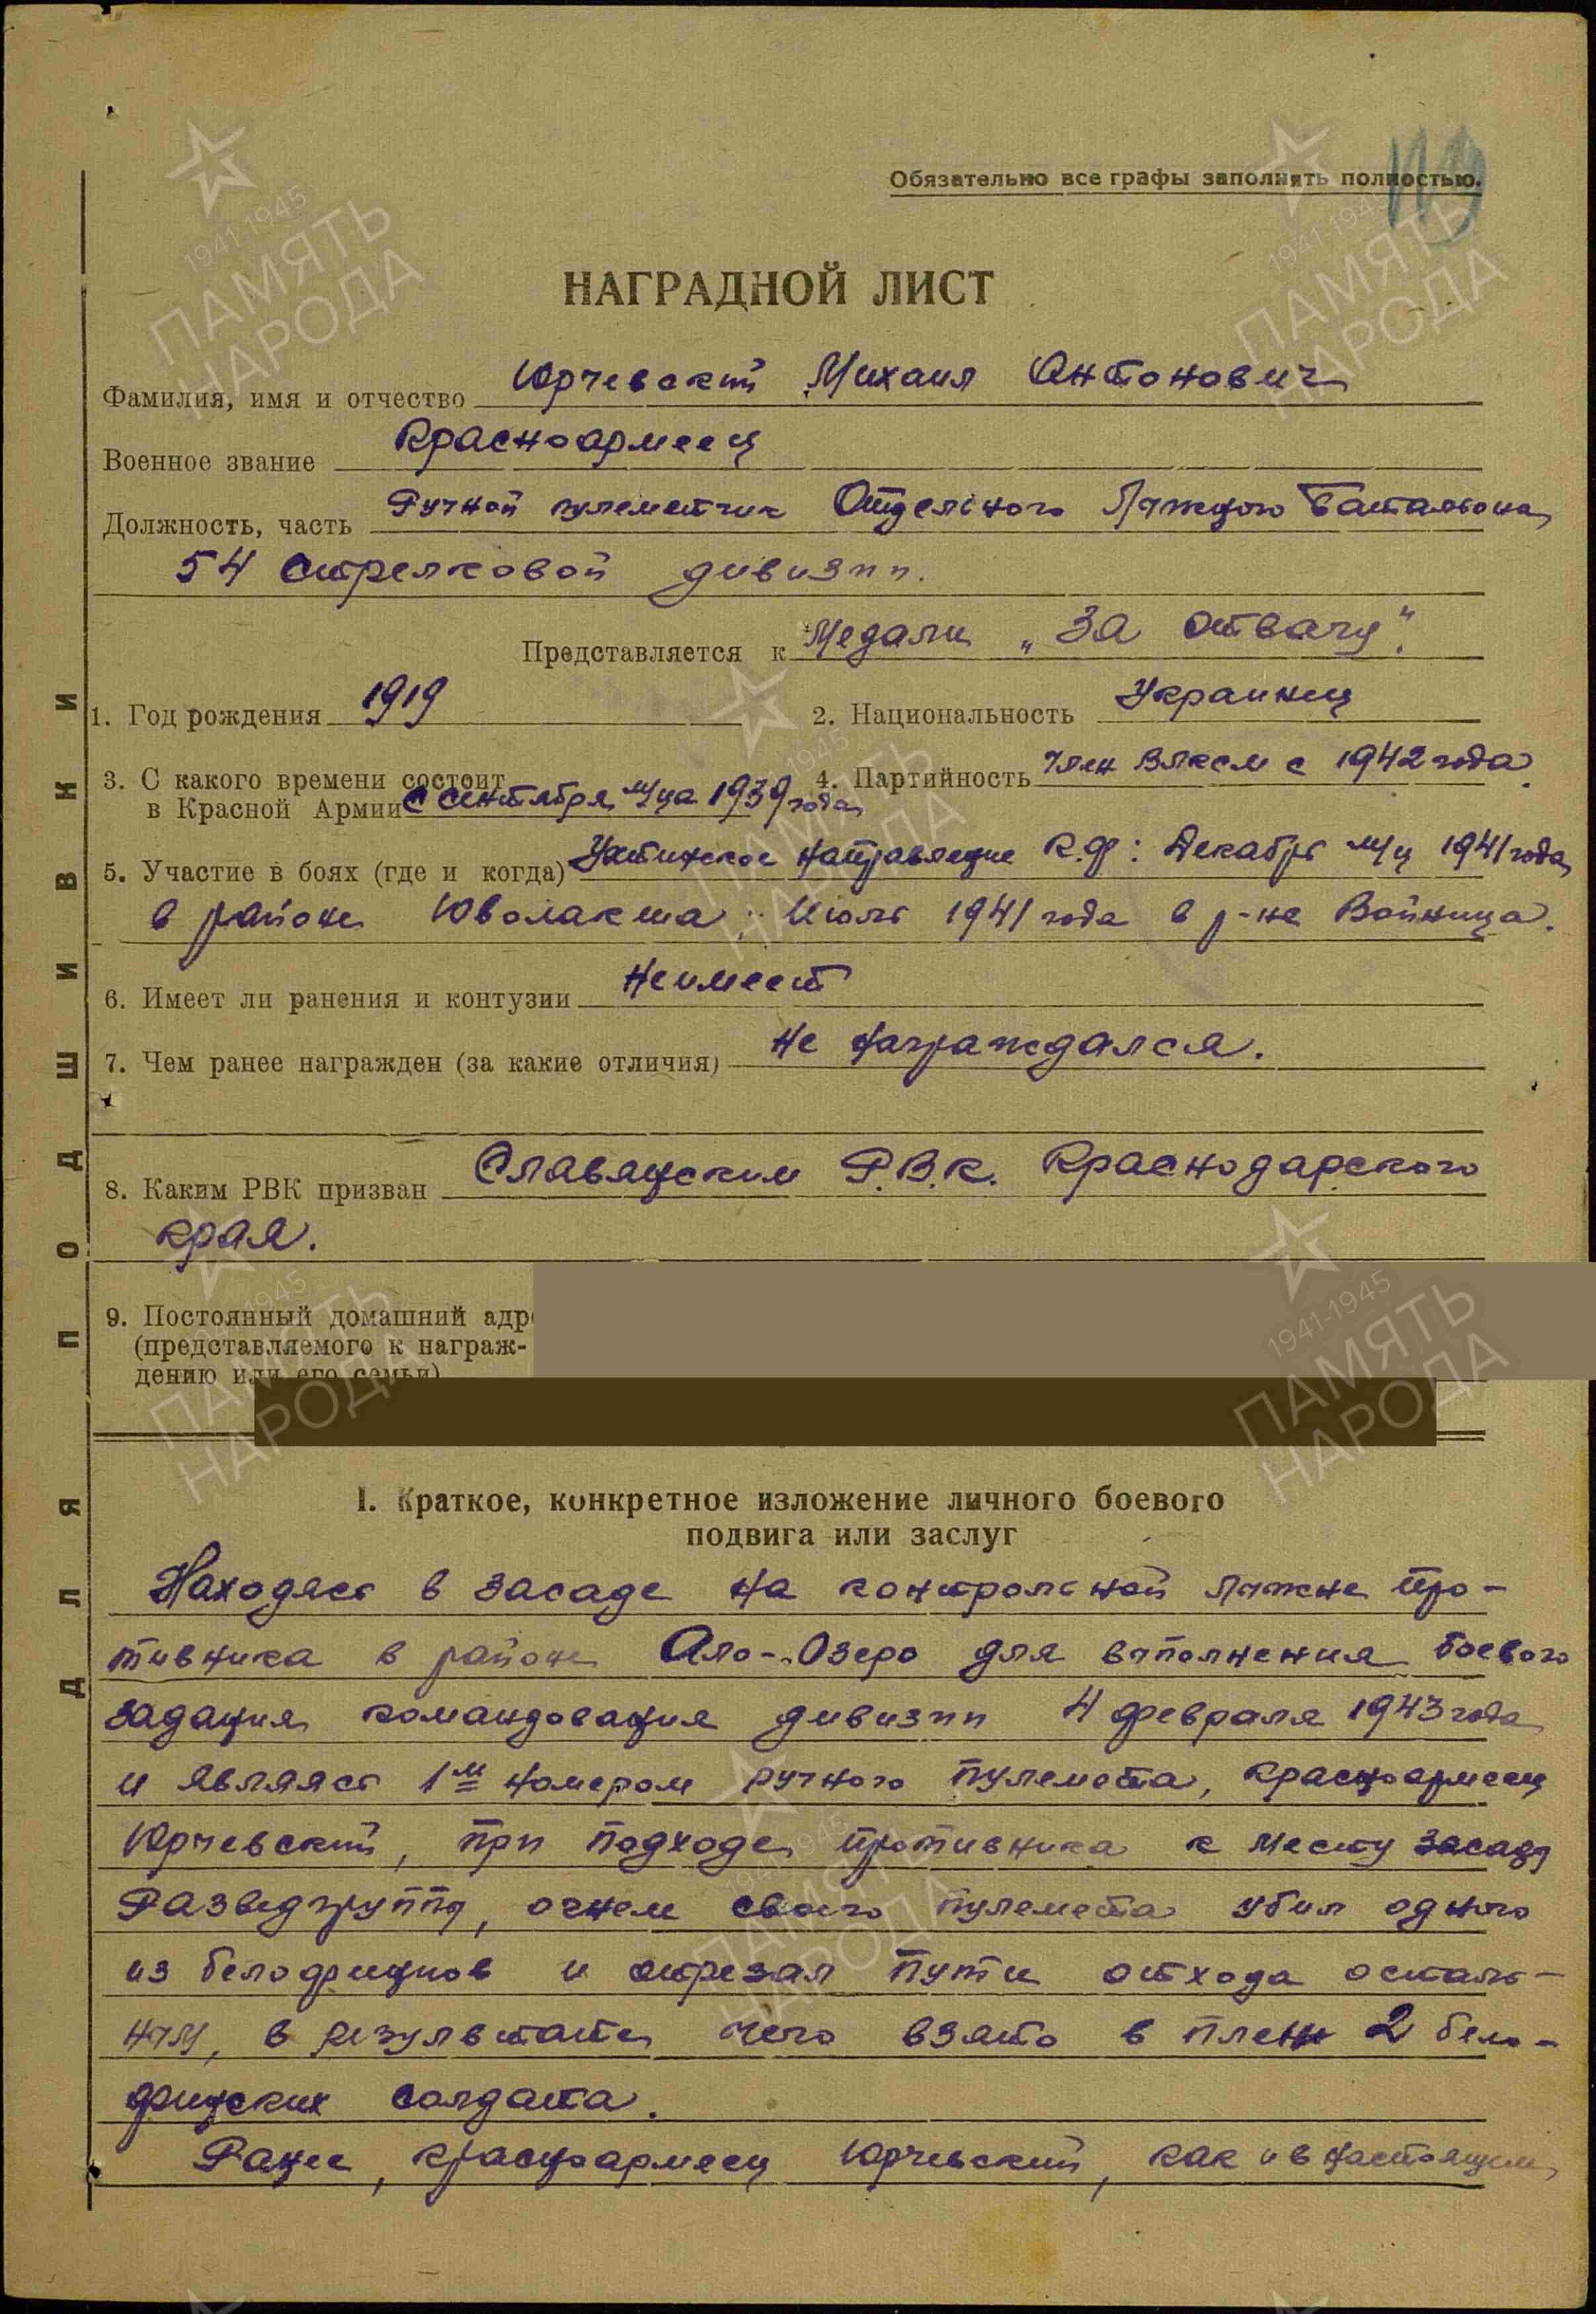 Обязательно все графы заполнять полностью.
119
НАГРАДНОЙ ЛИСТ
Фамилия, имя и отчество Юрчевский Михаил Антонович
Военное звание Красноармеец
Должность, часть Ручной пулеметчик Отдельного Лыжного Батальона
54 стрелковой дивизии.
Представляется к Медали „За отвагу".
1. Год рождения 1919 2. Национальность Украинец
3. С какого времени состоит 4. Партийность Член ВЛКСМ с 1942 года.
в Красной Армии с сентября м/ца 1939 года
5. Участие в боях (где и когда) Ухтинское направление К.Ф: Декабрь м/ц 1941 года
в районе Ювалакша; Июль 1941 года в р-не Войница.
6. Имеет ли ранения и контузии неимеет
7. Чем ранее награжден (за какие отличия) не награждался.
8. Каким РВК призван Славянским Р.В.К. Краснодарского
края.
9. Постоянный домашний адр
(представляемого к награж-
дению или его семьи)
I. Краткое, конкретное изложение личного боевого
подвига или заслуг
Находясь в засаде на контрольной лыжне про-
тивника в районе Ало-Озеро для выполнения боевого
задания командования дивизии 4 февраля 1943 года
и являясь 1м номером ручного пулемета, красноармеец
Юрчевский, при подходе противника к месту засады
Разведгруппы, огнем своего пулемета убил одного
из белофиннов и отрезал пути отхода осталь-
ным, в результате чего взято в плен 2 бело-
финских солдата.
Ранее, красноармеец Юрчевский, как и в настоящем
ДЛЯ ПОДШИВКИ
1941-1945
ПАМЯТЬ
НАРОДА